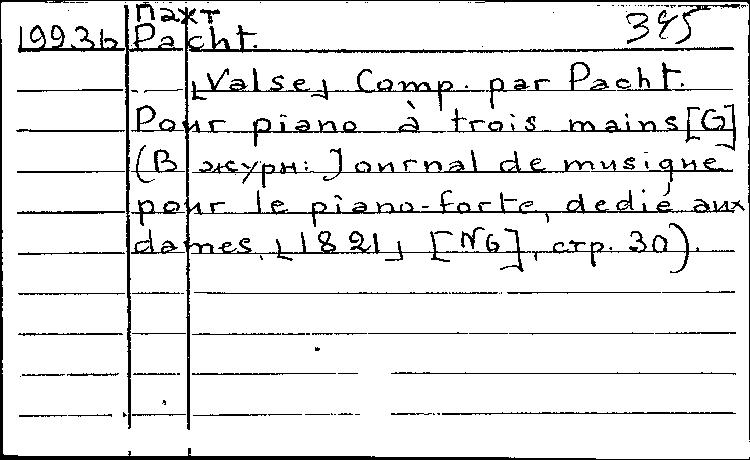 Пахт 345
1993b Pacht.
⌊Valse⌋ Comp. par Pacht.
Pour piano à trois mains [G]
(В журн: Journal de musique
pour le piano-forte, dedié aux
dames. ⌊1821⌋ [№6], стр. 30).